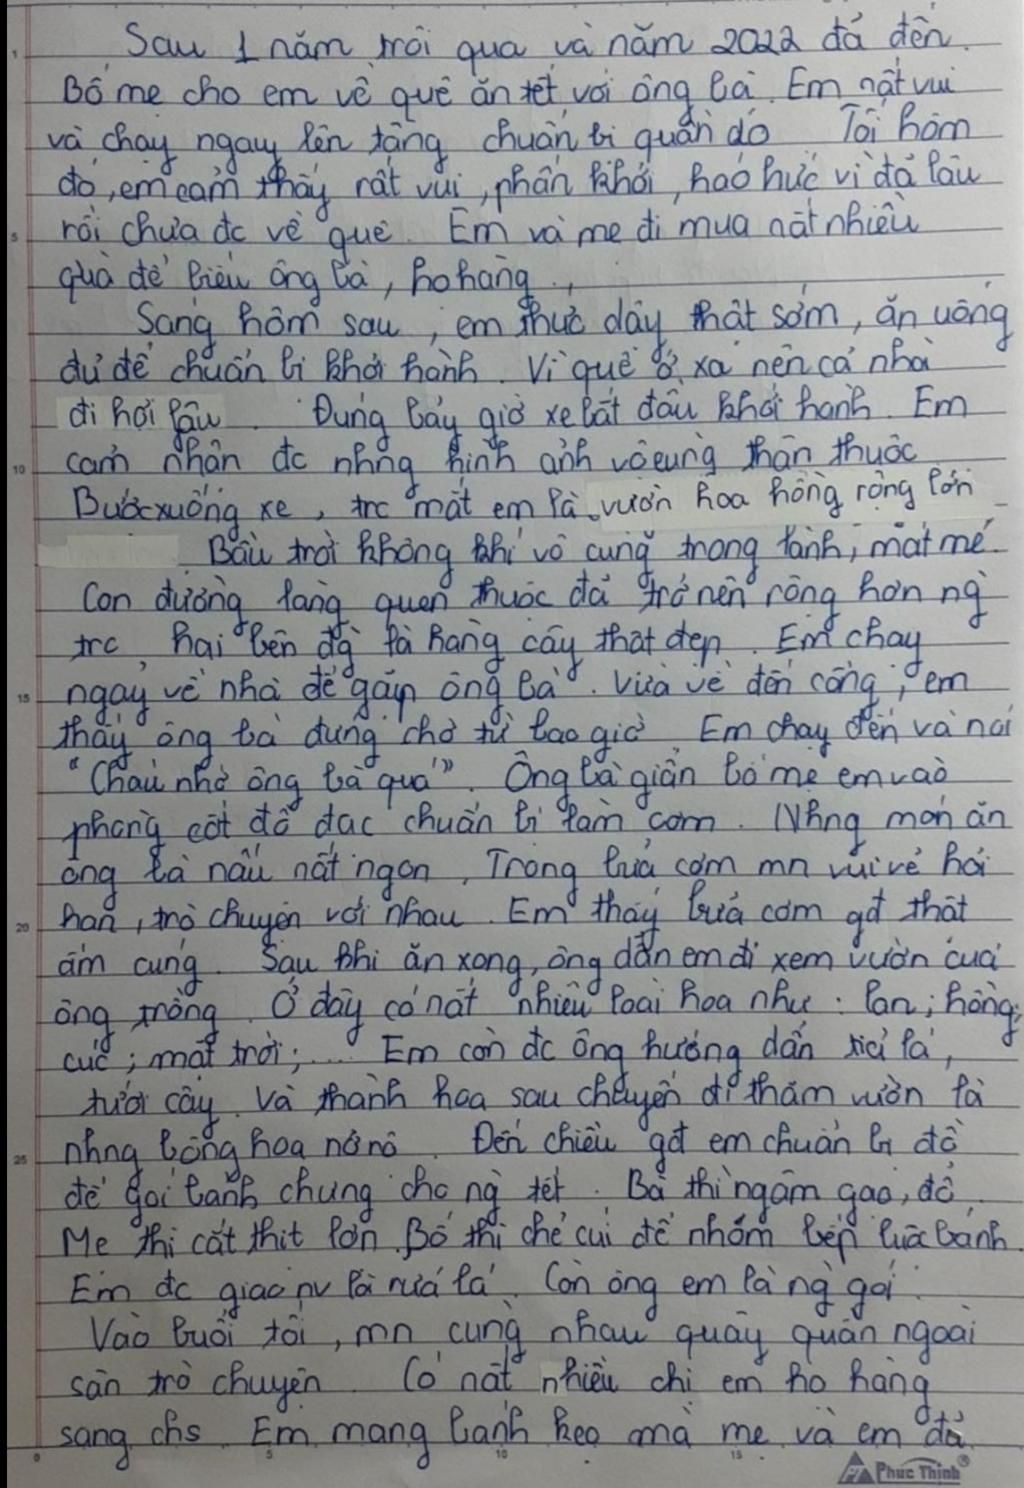 Sau 1 năm trôi qua và năm 2022 đã đến.
Bố mẹ cho em về quê ăn tết với ông bà. Em nất vui
và chạy ngay lên tầng chuẩn bị quần dó Tối hôm
đó, em cảm thấy rất vui, phấn khởi, háo hức vì đã lâu
rồi chưa đc về quê. Em và mẹ đi mua nất nhiều
quà để biếu ông bà, họ hàng.,
Sáng hôm sau, em thức dậy thật sớm, ăn uống
đủ để chuẩn bị khởi hành. Vì quê ở xa nên cả nhà
đi hơi lâu. Đúng bảy giờ xe bắt đầu khởi hành. Em
cảm nhận đc nhng hình ảnh vô cùng thân thuộc
Bước xuống xe, trc mắt em là vườn hoa hồng rộng lớn
Bầu trời không khí vô cùng trong lành, mát mẻ.
Con đường làng quen thuộc đã trở nên rộng hơn ng
trc hai bên đg là hàng cây thật đẹp. Em chạy
ngay về nhà để gặp ông bà. Vừa về đến cổng, em
thấy ông bà đứng chờ từ bao giờ Em chạy đến và nói
"Cháu nhớ ông bà quá". Ông bà giần bố mẹ em vào
phòng cất đồ đạc chuẩn bị làm cơm. Nhng món ăn
ông bà nấu nất ngon, Trong bữa cơm mn vui vẻ hỏi
han, trò chuyện với nhau. Em thấy bữa cơm gđ thật
ấm cúng. Sau khi ăn xong, ông dẫn em đi xem vườn của
ông trồng. Ở đây có nất nhiều loài hoa như: lan; hồng;
cúc; mặt trời;.... Em còn đc ông hướng dẫn tỉa lá,
tưới cây. Và thành hoa sau chuyến đi thăm vườn là
nhng bông hoa nở nộ. Đến chiều gđ em chuẩn bị đồ
để gói bánh chưng cho ng tết. Bà thì ngâm gạo, đỗ.
Mẹ thì cắt thịt lợn. Bố thì chẻ củi để nhóm bếp luộc bánh.
Em đc giao nv là rửa lá. Còn ông em là ng gói.
Vào buổi tối, mn cùng nhau quây quần ngoài
sân trò chuyện. Có nất nhiều chị em họ hàng
sang chs. Em mang bánh kẹo mà mẹ và em đã
Phuc Thinh